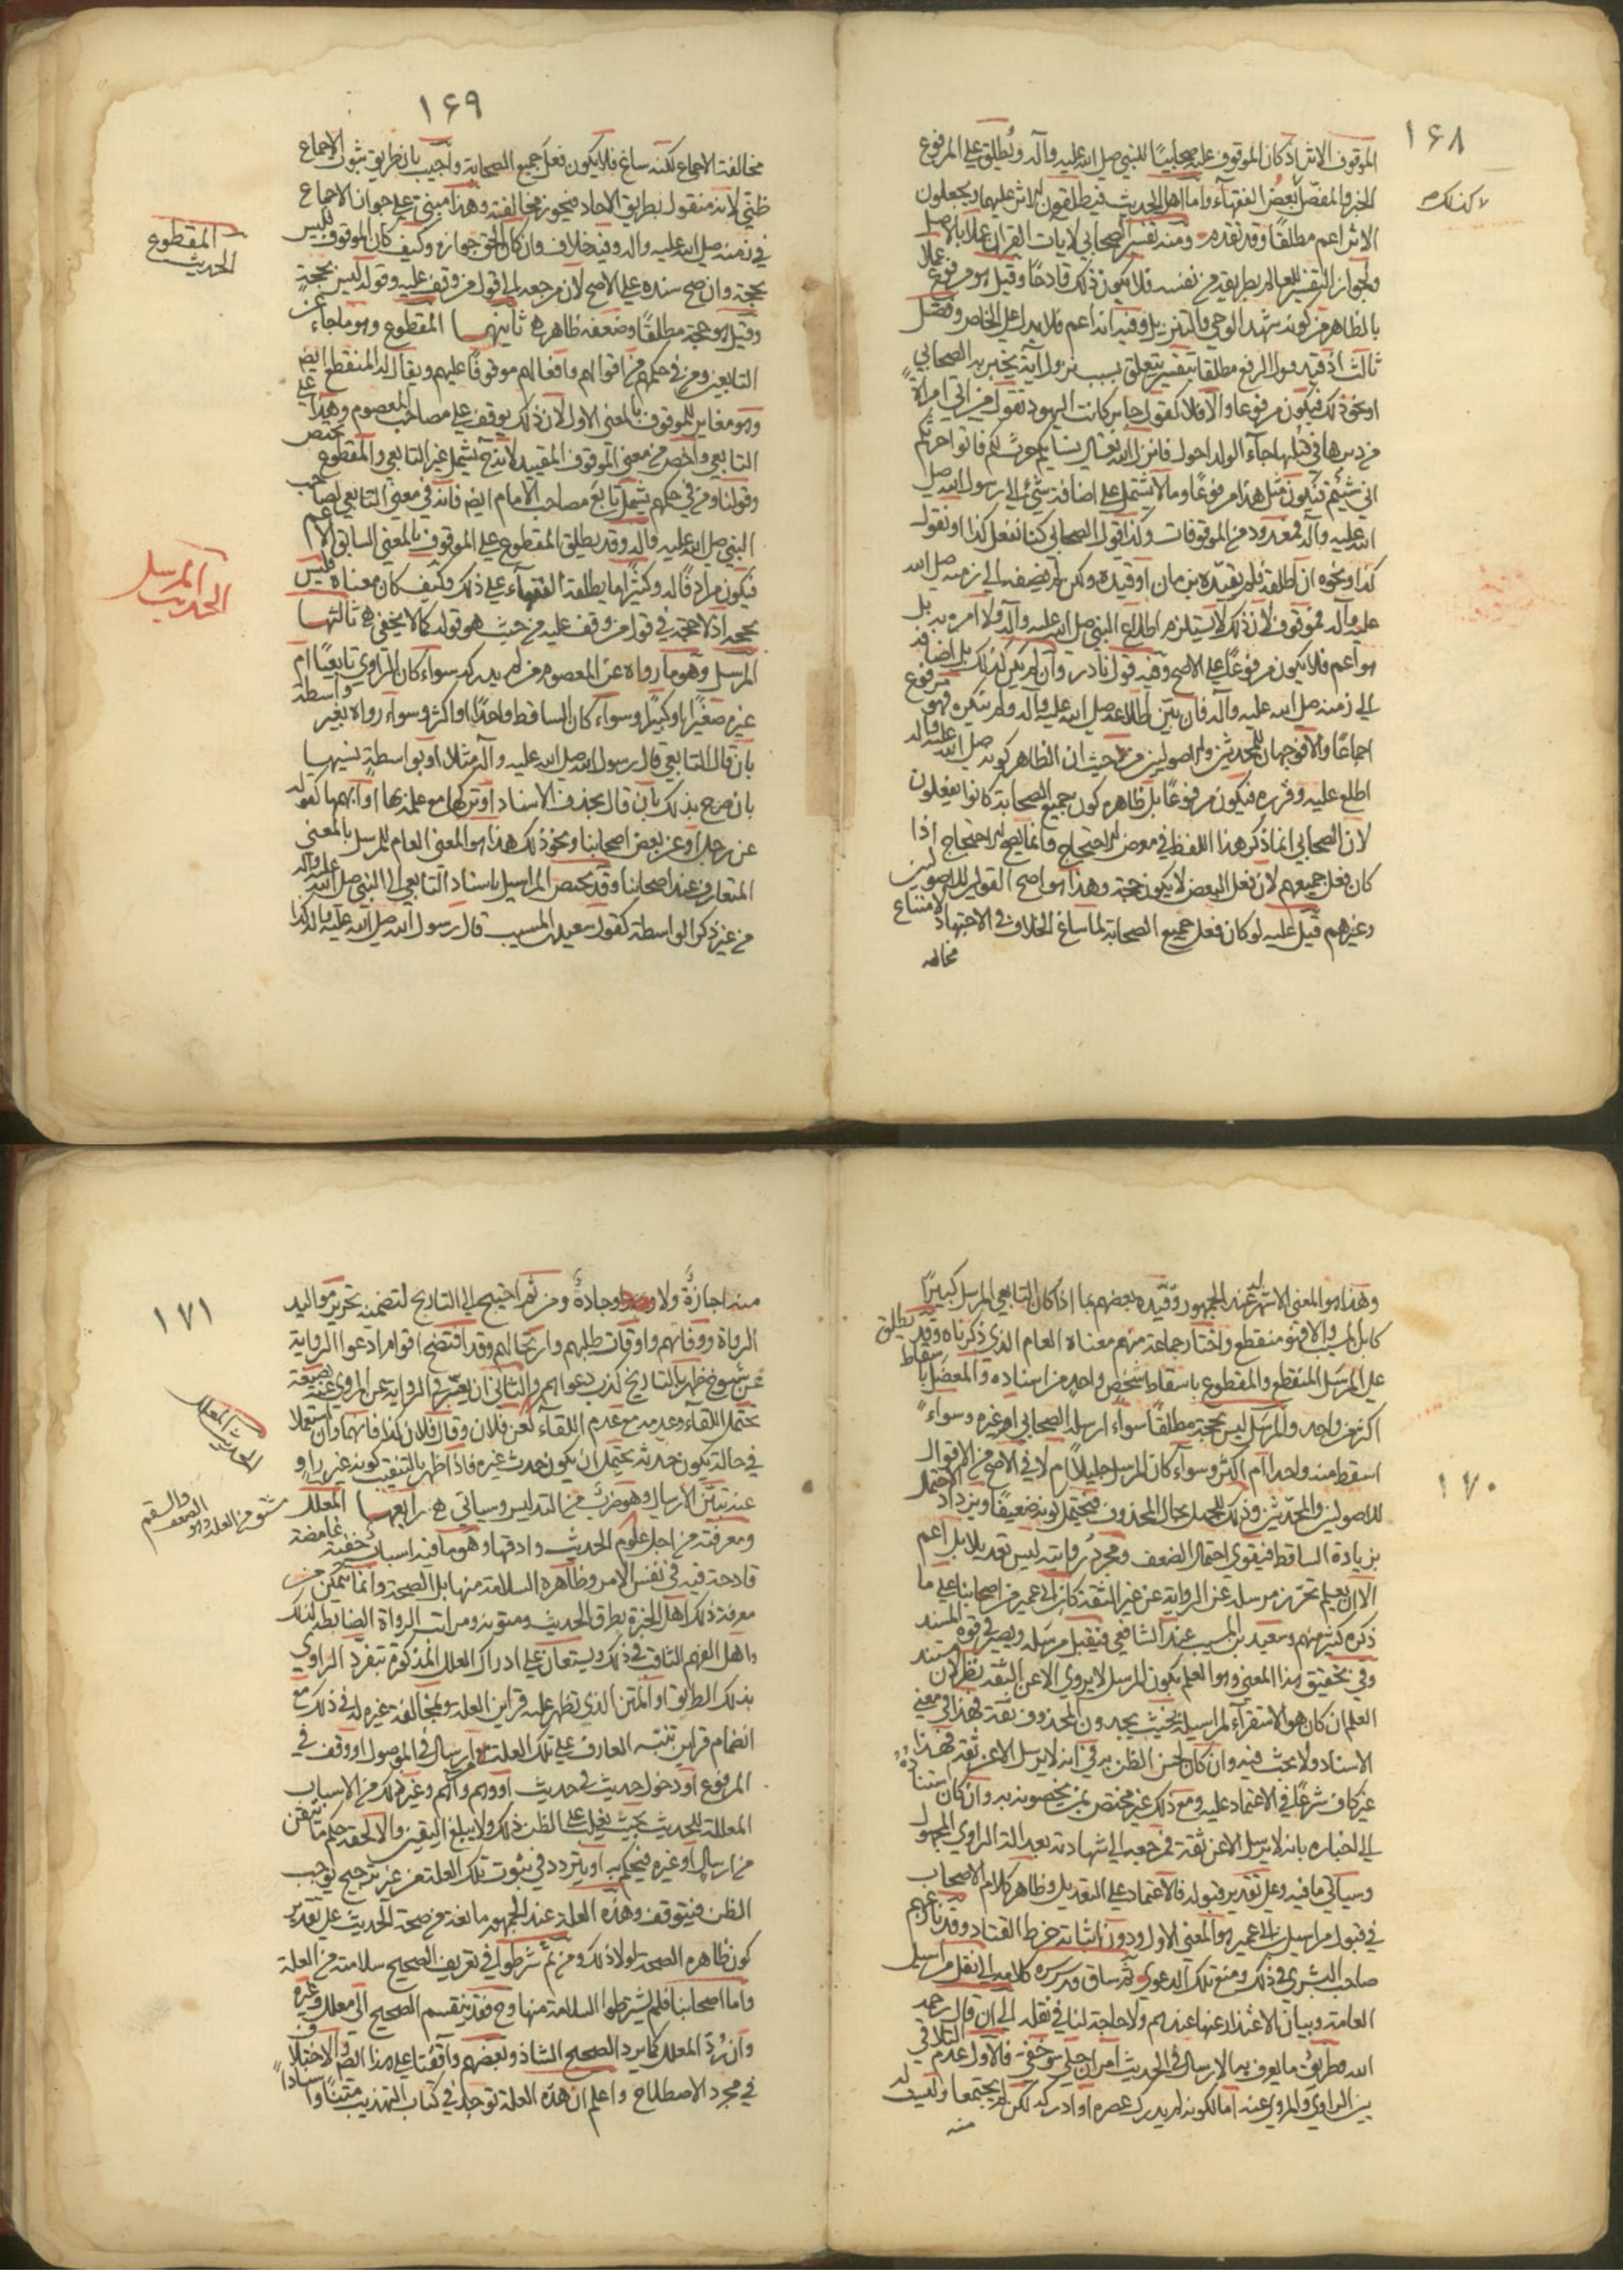 ١٦٨
الموقوف الاثر اذ كان الموقوف عليه صحابيا للنبي صلى الله عليه وآله ويطلق على المرفوع
الخبر والمفصل بعض الفقهاء واما اهل الحديث فيطلقون الاثر عليهما ويجعلون
الاثر اعم مطلقا وقد تقدم ومنه تفسير الصحابي لايات القران عملا بالاصل
ولجواز التفسير للعالم بطريقه من نفسه فلا يكون ذلك قادحا وقيل هو مرفوع عملا
بالظاهر من كونه شهد الوحي والتنزيل وفيه انه اعم فلا يدل على الخاص وفصل
ثالث اذ قيد قول الرفع مطلقا بتفسير يتعلق بسبب نزول آية يخبر به الصحابي
او نحو ذلك فيكون مرفوعا والا فلا كقول جابر كانت اليهود تقول من اتى امرأة
من دبرها في قبلها جاء الولد احول فانزل الله تعالى نساؤكم حرث لكم فاتوا حرثكم
انى شئتم فيكون مثل هذا مرفوعا وما لا يشتمل على اضافة شيء الى رسول الله صلى
الله عليه وآله فمعدود من الموقوفات وكذا قول الصحابي كنا نفعل كذا او نقول
كذا ونحوه ان اطلقه فلم يقيده بزمان او قيده ولكن لم يضفه الى زمنه صلى الله
عليه وآله فموقوف لان ذلك لا يستلزم اطلاع النبي صلى الله عليه وآله ولا امره به بل
هو اعم فلا يكون مرفوعا على الاصح وفيه قول نادر وان لم يكن كذلك بل اضافه
الى زمنه صلى الله عليه وآله فان بين اطلاعه صلى الله عليه وآله ولم ينكره فهو مرفوع
اجماعا والا فوجهان للمحدثين والاصوليين من حيث ان الظاهر كونه صلى الله عليه وآله
اطلع عليه وقرره فيكون مرفوعا بل ظاهره كون جميع الصحابة كانوا يفعلون
لان الصحابي انما ذكر هذا اللفظ في معرض الاحتجاج وانما يصح الاحتجاج اذا
كان فعل جميعهم لان فعل البعض لا يكون حجة وهذا هو اصح القولين للاصوليين
وغيرهم قيل عليه لو كان فعل جميع الصحابة لما ساغ الخلاف في الاجتهاد لامتناع
مخالفة
١٦٩
مخالفة الاجماع لكنه ساغ فلا يكون فعل جميع الصحابة واجيب بان طريق ثبوت الاجماع
ظني لانه منقول بطريق الاحاد فيجوز مخالفته وهذا مبني على جواز الاجماع
في زمنه صلى الله عليه وآله وفيه خلاف وان كان الحق جوازه وكيف كان الموقوف فليس
بحجة وان صح سنده على الاصح لان مرجعه الى قول من وقف عليه وقوله ليس بحجة
وقيل هو حجة مطلقا وضعفه ظاهر ثانيها المقطوع وهو ما جاء عن
التابعين ومن في حكمهم من اقوالهم وافعالهم موقوفا عليهم ويقال له المنقطع ايضا
وهو مغاير للموقوف بالمعنى الاول لان ذلك يوقف على مصاحب المعصوم وهذا على
التابعي واخص من معنى الموقوف المقيد لانه ح يشمل غير التابعي والمقطوع يختص
وقولنا ومن في حكمهم يشمل تابع مصاحب الامام ايضا فانه في معنى التابعي لصاحب
النبي صلى الله عليه وآله وقد يطلق المقطوع على الموقوف بالمعنى السابق الاعم
فيكون مرادفا له وكثيرا ما يطلقه الفقهاء على ذلك وكيف كان معناه فليس
بحجة اذ لا حجة في قول من وقف عليه من حيث هو قوله كما لا يخفى ثالثها
المرسل وهو ما رواه عن المعصوم من لم يدركه سواء كان الراوي تابعيا ام
غيره صغيرا او كبيرا وسواء كان الساقط واحدا او اكثر وسواء رواه بغير واسطة
بان قال التابعي قال رسول الله صلى الله عليه وآله مثلا او بواسطة نسيها
بان صرح بذلك بان قال بحذف الاسناد او تركها مع علمه بها او ابهمها كقوله
عن رجل او عن بعض اصحابنا ونحو ذلك هذا هو المعنى العام للمرسل بالمعنى
المتعارف عند اصحابنا وقد يختص المراسيل باسناد التابعي الى النبي صلى الله عليه وآله
من غير ذكر الواسطة كقول سعيد بن المسيب قال رسول الله صلى الله عليه وآله كذا
المقطوع
الحديث
المرسل
الحديث
١٧٠
وهذا هو المعنى الاشهر له عند الجمهور وقيده بعضهم بما اذا كان التابعي المرسل كبيرا
كابن المسيب والا فهو منقطع واختار جماعة منهم معناه العام الذي ذكرناه وقد يطلق
على المرسل المنقطع والمقطوع باسقاط شخص واحد من اسناده والمعضل باسقاط
اكثر من واحد والمرسل ليس بحجة مطلقا سواء ارسله الصحابي او غيره وسواء
اسقط منه واحد ام اكثر وسواء كان المرسل جليلا ام لا في الاصح من الاقوال
للاصوليين والمحدثين وذلك للجهل بحال المحذوف فيحتمل كونه ضعيفا ويزداد الاحتمال
بزيادة الساقط فيقوى احتمال الضعف ومجرد روايته ليس تعديلا بل اعم
الا ان يعلم تحرز مرسله عن الرواية عن غير الثقة كابن ابي عمير من اصحابنا على ما
ذكره كثير منهم وسعيد بن المسيب عند الشافعي فيقبل مرسله ويصير في قوة المسند
وفي تحقيق هذا المعنى وهو العلم بكون المرسل لا يروي الا عن الثقة نظر لان مستند
العلم ان كان هو الاستقراء لمراسيله بحيث يجدون المحذوف ثقة فهذا في معنى
الاسناد ولا بحث فيه وان كان لحسن الظن به في انه لا يرسل الا عن ثقة فهذا
غير كاف شرعا في الاعتماد عليه ومع ذلك غير مختص بمن يخصونه به وان كان استناده
الى اخباره بانه لا يرسل الا عن ثقة فمرجعه الى شهادته بعدالة الراوي المجهول
وسيأتي ما فيه وعلى تقدير قبوله فالاعتماد على التعديل وظاهر كلام الاصحاب
في قبول مراسيل ابن ابي عمير هو المعنى الاول ودون اثباته خرط القتاد وقد نازعهم
صاحب البشرى في ذلك ومنع تلك الدعوى ثم ساق قدس سره كلامه الى نقل مراسيل
العامة وبيان الاعتذار عنها عندهم ولا حاجة لنا في نقله الى ان قال رحمه
الله وطريق ما يعرف به الارسال في الحديث امران جلي وخفي فالاول عدم التلاقي
بين الراوي والمروي عنه اما لكونه لم يدرك عصره او ادركه لكن لم يجتمعا وليست له
منه
١٧١
منه اجازة ولا وجادة ومن ثم احتيج الى التاريخ لتضمنه تحرير مواليد
الرواة ووفاتهم واوقات طلبهم وارتحالهم وقد افتضح اقوام ادعوا الرواية
عن شيوخ ظهر بالتاريخ كذب دعواهم والثاني ان يعبر في الرواية عن المروي عنه بصيغة
تحتمل اللقاء وعدمه مع عدم اللقاء كعن فلان وقال فلان كذا فانهما وان استعملا
في حالة يكون حدثه يحتمل ان يكون حدث غيره فاذا ظهر بالتنقيب كونه غير راو
عنه تبين الارسال وهو ضرب من التدليس وسيأتي رابعها المعلل
ومعرفته من اجل علوم الحديث وادقها وهو ما فيه اسباب خفية غامضة
قادحة فيه في نفس الامر وظاهره السلامة منها بل الصحة وانما يتمكن من
معرفة ذلك اهل الخبرة بطرق الحديث ومتونه ومراتب الرواة الضابطة لذلك
واهل الفهم الثاقب في ذلك ويستعان على ادراك العلل المذكورة بتفرد الراوي
بذلك الطريق او المتن الذي تظهر عليه قراين العلة وبمخالفة غيره له في ذلك مع
انضمام قراين تنبه العارف على تلك العلة من ارسال في الموصول او وقف في
المرفوع او دخول حديث في حديث او وهم واهم وغير ذلك من الاسباب
المعللة للحديث بحيث يغلب على الظن ذلك ولا يبلغ اليقين والا لحقه حكم ما تيقن
من ارسال او غيره فيحكم به او يتردد في ثبوت تلك العلة من غير ترجيح يوجب
الظن فيتوقف وهذه العلة عند الجمهور مانعة من صحة الحديث على تقدير
كون ظاهره الصحة لولا ذلك ومن ثم شرطوا في تعريف الصحيح سلامته من العلة
واما اصحابنا فلم يشترطوا السلامة منها وح فقد ينقسم الصحيح الى معلل وغيره
وان رد المعلل كما يرد الصحيح الشاذ وبعضهم وافقنا على هذا ايضا والاختلاف
في مجرد الاصطلاح واعلم ان هذه العلة توجد في كتاب التهذيب متنا واسنادا
المعلل
الحديث